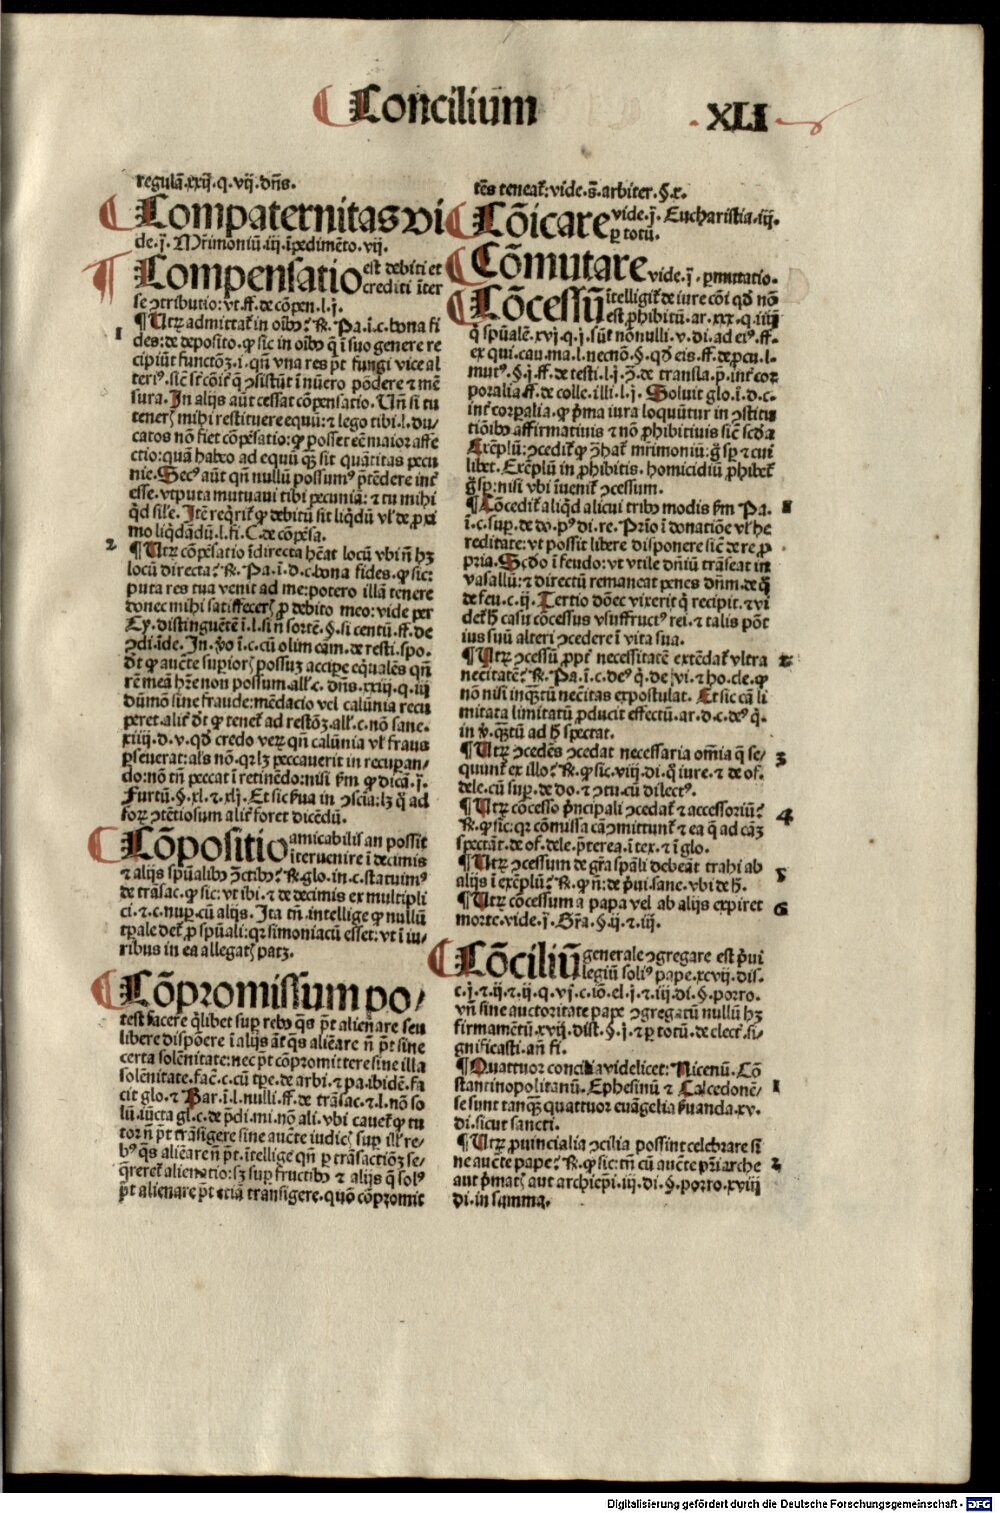 Concilium
XLI
regulā.xxij.q.vij.dn̄s.
Compaternitas vi
de.j. Mr̄imoniū.iij.īpedimēto.vij.
Compensatio est debiti et
crediti īter
se ↄtributio: vt.ff.de cōpen.l.j.
¶ Utrꝫ admittat̄ in oībꝰ: R̄. Pa.ī.c. bona fi
des: de deposito. ꝙ sic in oībꝰ q̄ ī suo genere re
cipiūt functōꝫ. ī. qn̄ vna res pt̄ fungi vice al
1
sura. In alijs aūt cessat cōpensatio. Un̄ si tu
teneris mihi restituere equū: ⁊ lego tibi.l.du-
catos nō fiet cōpēsatio: ꝙ posset eē maior affe
ctio: quā habeo ad equū qꝫ sit quātitas pecu
nie. Secꝰ aūt qn̄ nullū possumꝰ p̄tēdere int̄
esse. vtputa mutuaui tibi pecuniā: ⁊ tu mihi
qd̄ sil'e. Itē reqrit̄ ꝙ debitū sit liqdū vl' de ꝓxi
mo liqdādū.l.fi. C. de cōpēsa.
2
¶ Utrꝫ cōpēsatio īdirecta hēat locū vbi n̄ hꝫ
locū directa: R̄. Pa.ī.d.c. bona fides. ꝙ sic:
puta res tua venit ad me: potero illā tenere
donec mihi satisfecer̄ ꝓ debito meo: vide per
Cy. distinguētē ī.l. si n̄ sortē. §. si centū.ff.de
ↄdi.īde. In.ꝟo ī.c. cū olim cām. de resti. spo.
dt̄ ꝙ aucte supioris possuꝫ accipe equalēs qn̄
rē meā hr̄e non possum. all'.c. dn̄s.xxiij.q.iij
dūmō sine fraude: mēdacio vel calūnia recu
peret. alit̄ dt̄ ꝙ tenet̄ ad restōꝫ. all'.c. nō sane.
xiiij.d.v. qd̄ credo veꝝ qn̄ calūnia vl' fraus
ꝑseuerat: als̄ nō. qꝛ lꝫ peccauerit in recupan-
do: nō tn̄ peccat ī retinēdo: nisi fm̄ ꝙ dicā.j.
Furtū.§.xl.⁊.xlj. Et sic ẜua in ↄsciā: lꝫ q̄ ad
forꝫ ↄtētiosum alit̄ foret dicēdū.
Cōpositio amicabilis an possit
īteruenire ī decimis
⁊ alijs spūalibꝰ ꝫctibꝰ: R̄. glo. in.c. statuimꝰ
de trāsac. ꝙ sic: vt ibi. ⁊ de decimis ex multipli
ci. ⁊.c. nup. cū alijs. Ita tn̄. intellige ꝙ nullū
tp̄ale det̄ ꝓ spūali: qꝛ simoniacū esset: vt ī iu-
ribus in ea allegatis patꝫ.
Cōpromissum po-
test facere qlibet sup rebꝰ qs̄ pt̄ alienare seu
libere dispōere ī alijs āt qs̄ alieāre n̄ pt̄ sine
certa solēnitate: nec pt̄ cōpromittere sine illa
solēnitate. fac̄.c. cū tp̄e. de arbi. ⁊ pa. ibidē. fa
cit glo. ⁊ Bar.ī.l. nulli.ff. de trāsac. ⁊.l. nō so
lū. iūcta gl.c. de p̄di. mi. nō ali. vbi cauet̄ ꝙ tu
tor n̄ pt̄ trāsigere sine aucte iudicis sup ill' re-
bꝰ qs̄ alieāre n̄ pt̄. ītellige qn̄ ꝑ trāsactiōꝫ se-
queret̄ alienatio: sꝫ sup fructibꝰ ⁊ alijs q̄ solꝰ
pt̄ alienare pt̄ etiā transigere. quō cōpromit
tēs teneat̄: vide.s̄. arbiter.§.x.
Cōicare vide.j. Eucharistia.iij.
ꝑ totū.
Cōmutare vide.j. ꝑmutatio.
Cōcessū ītelligit̄ de iure cōi qd̄ nō
est ꝓhibitū. ar.xxx.q.iiij
q̄ spūalē.xvj.q.j. sūt nōnulli.v.di. ad eiꝰ.ff.
ex qui. cau. ma.l. necnō.§. qd̄ eis.ff. de pcu.l.
mutꝰ.§.j.ff. de testi.l.j. ꝫ. de transla. p̄. int̄ cor
poralia.ff. de colle. illi.l.j. Soluit glo.ī.d.c.
int̄ corpalia. ꝙ p̄ma iura loquūtur in ↄstitu
tiōibꝰ affirmatiuis ⁊ nō ꝓhibitiuis sicut scd̄a
Exēplū: ↄcedit̄ ꝙ ↄhat̄ mr̄imoniū: g̊ sp̄ ⁊ cui
libet. Exēplū in ꝓhibitis. homicidiū ꝓhibet̄
g̊ sp̄: nisi vbi īuenit̄ ↄcessum.
1
¶ Cōcedit̄ aliqd̄ alicui tribꝰ modis fm̄ Pa.
ī.c. sup. de do. pꝰ di. re. Prīo ī donatiōe vl' he
reditate: vt possit libere disponere sicut de re ꝓ
pria. Scd̄o ī feudo: vt vtile dn̄iū trāseat in
vasallū: ⁊ directū remaneat penes dn̄m. de q̄
de feu.c.ij. Tertio dōec vixerit q̄ recipit. ⁊ vi
det̄ h̄ casu cōcessus vsuffructꝰ rei. ⁊ talis pōt
ius suū alteri ↄcedere ī vita sua.
2
¶ Utrꝫ ↄcessū ꝓpt̄ necessitatē extēdat̄ vltra
necitatē: R̄. Pa.ī.c. deꝰ q̄. de vi. ⁊ ho. cle. ꝙ
nō nisi inqꝫtū necitas expostulat. Et sic cā li
mitata limitatū ꝓducit effectū. ar.d.c. deꝰ q̄.
in ꝟ. qꝫtū ad h̄ spectat.
3
¶ Utrꝫ ↄcedēs ↄcedat necessaria om̄ia q̄ se-
quunt̄ ex illo: R̄. ꝙ sic.viij.di. q̄ iure. ⁊ de of.
dele. cū sup. de do. ⁊ ↄtu. cū dilectꝰ.
4
¶ Utrꝫ cōcesso p̄ncipali ↄcedat̄ ⁊ accessoriū:
R̄. ꝙ sic: qꝛ cōmissa cā ↄmittunt̄ ⁊ ea q̄ ad cāꝫ
spectāt. de of. dele. p̄terea. ī tex. ⁊ ī glo.
5
¶ Utrꝫ ↄcessum de gr̄a spāli debeāt trahi ab
alijs ī exēplū: R̄. ꝙ n̄: de p̄ui. sane. vbi de h̄.
6
¶ Utrꝫ cōcessum a papa vel ab alijs expiret
morte. vide.j. Gr̄a.§.ij.⁊.iij.
Cōciliū generale ↄgregare est p̄ui
legiū soliꝰ pape.xcvij.dis.
c.j.⁊.ij.⁊.ij.q.vj.c. iō. el.j.⁊.iij.di.§. porro.
vn̄ sine auctoritate pape ↄgregatū nullū hꝫ
firmamētū.xvij.dist.§.j.⁊ ꝑ totū. de elect̄. si-
gnificasti. an̄ fi.
1
¶ Quattuor concilia videlicet: Nicenū. Cō
stantinopolitanū. Ephesinū ⁊ Calcedonē-
se sunt tanqꝫ quattuor euāgelia ẜuanda.xv.
di. sicut sancti.
2
¶ Utrꝫ ꝓuincialia ↄcilia possint celebrare si
ne aucte pape: R̄. ꝙ sic: tn̄ cū aucte pr̄iarche
aut p̄matis aut archiep̄i.iij.di.§. porro.xviij
di. in summa.
Digitalisierung gefördert durch die Deutsche Forschungsgemeinschaft - DFG